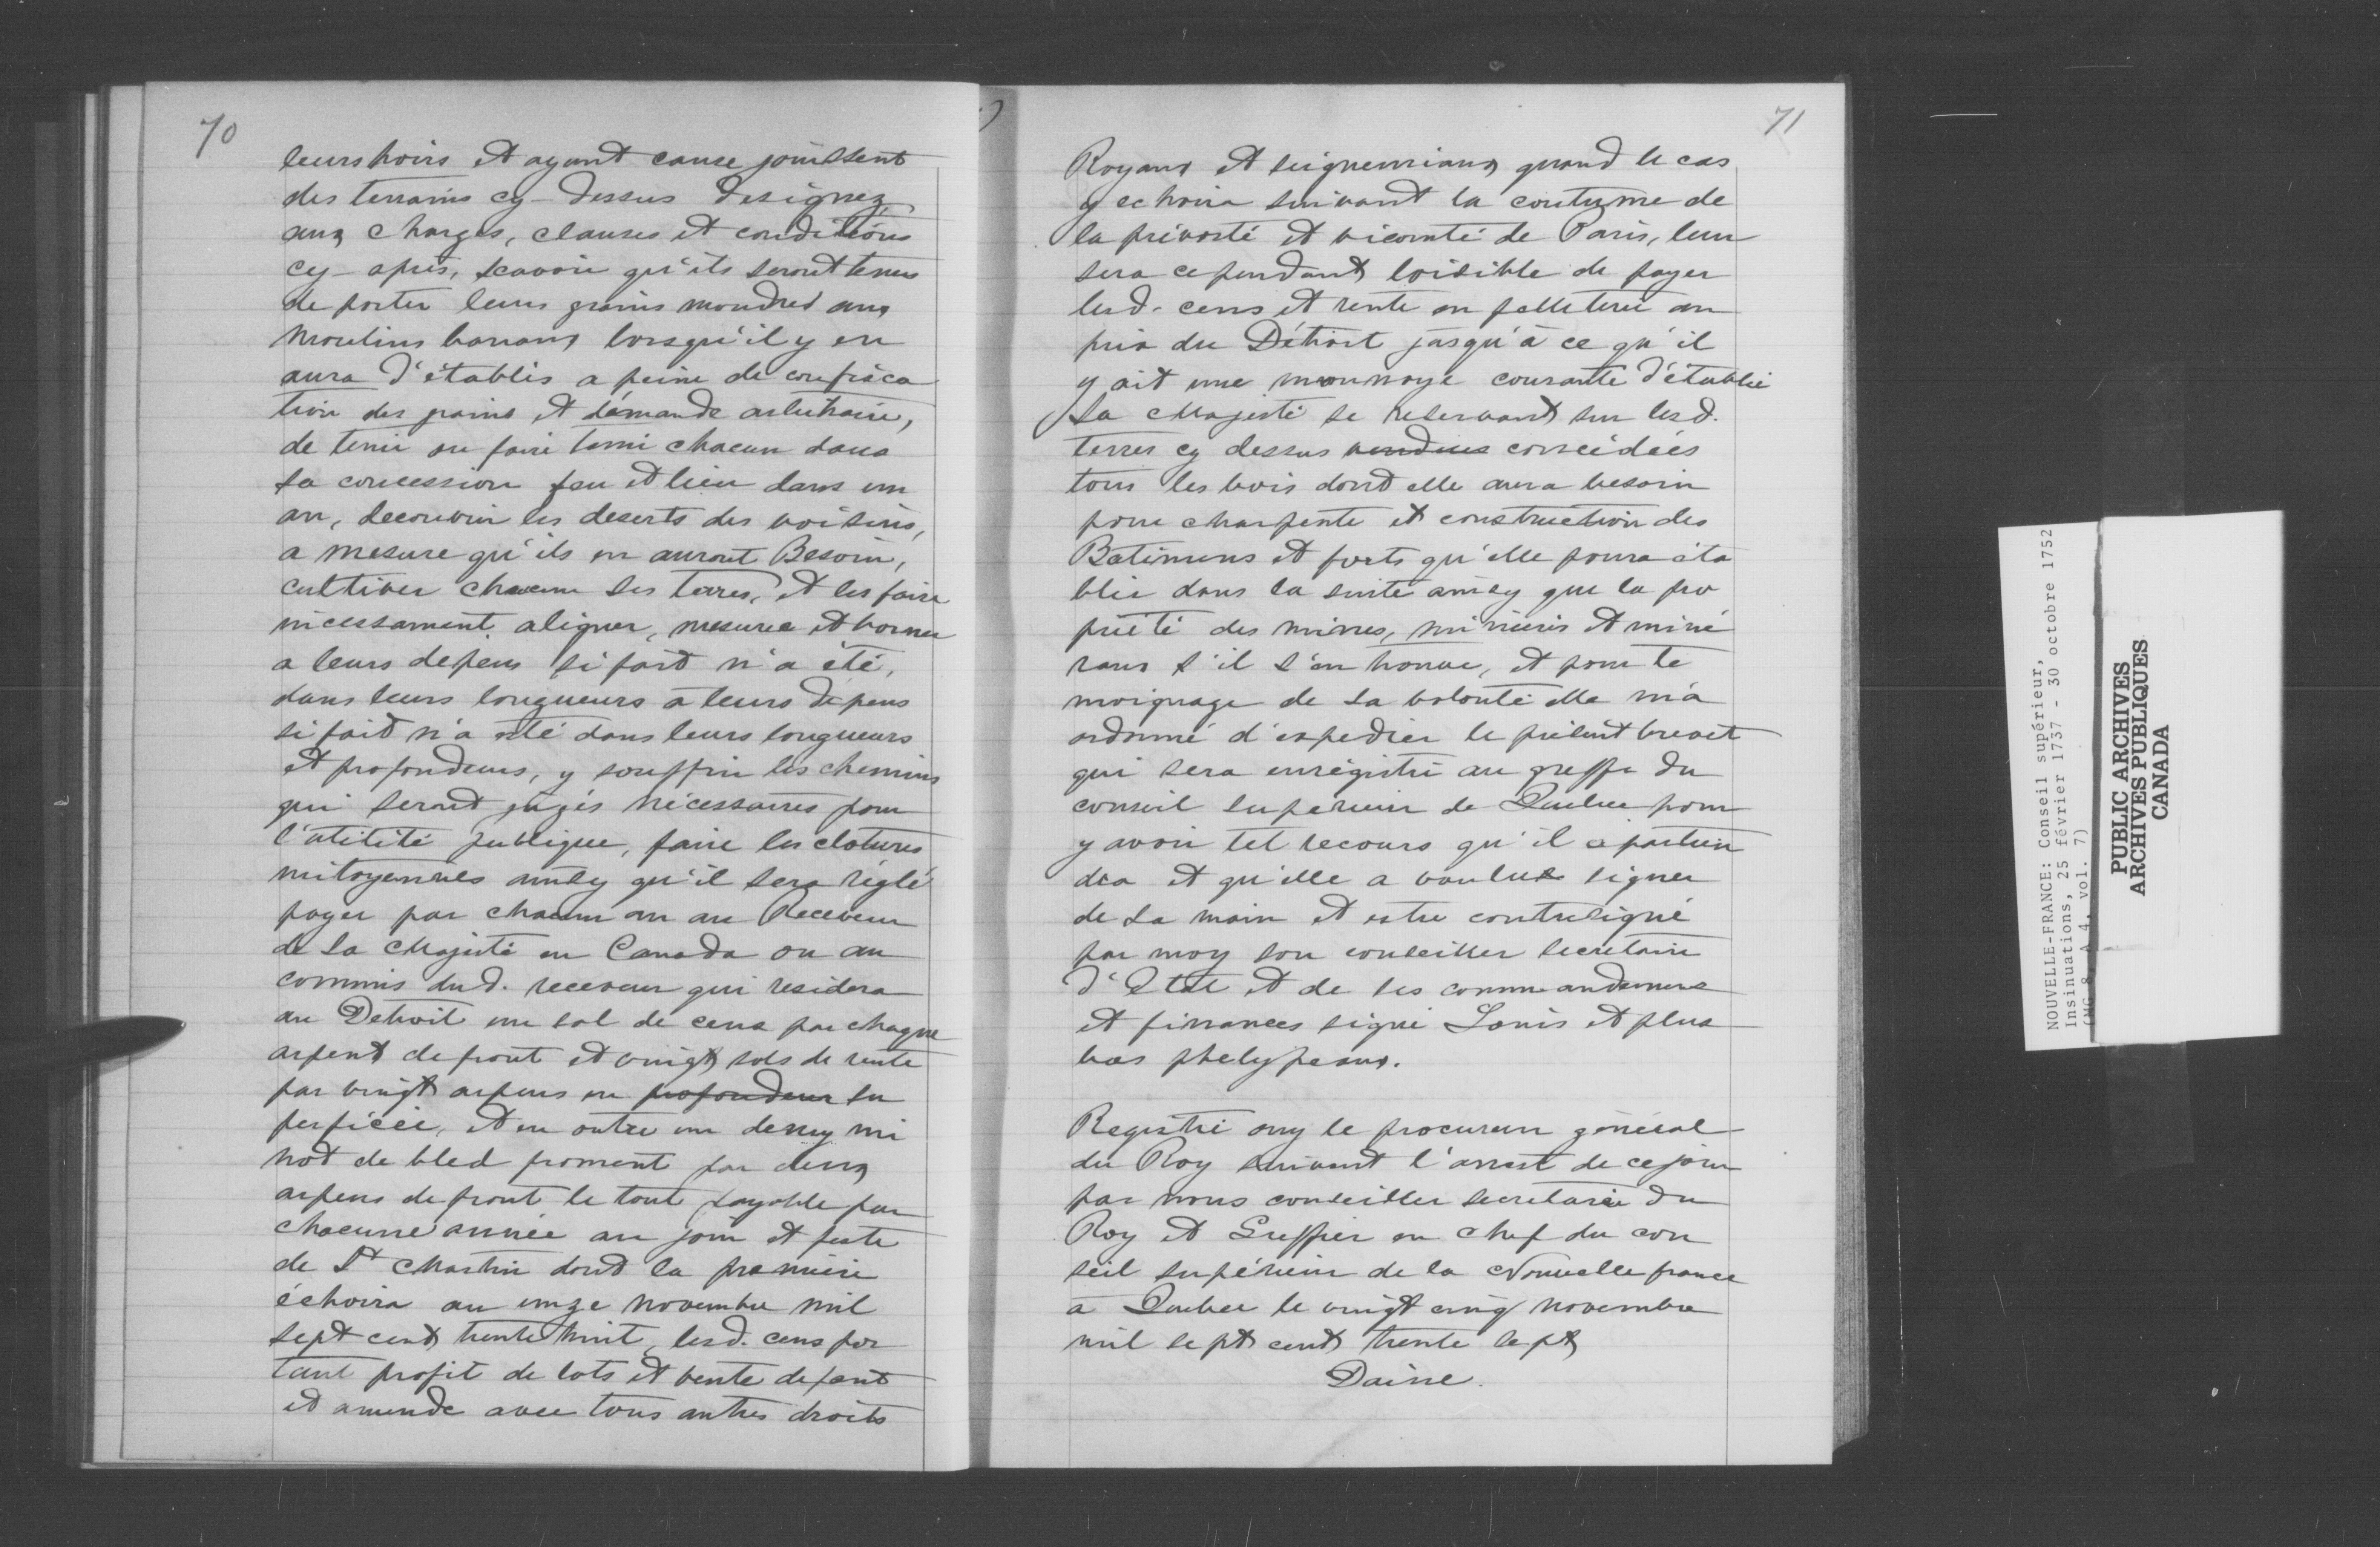 70
leurs hoirs et ayant cause jouissent
des terrains cy-dessus designez
aux charges, clauses et conditions
cy-après, scavoir qu'ils seront tenus
de porter leurs grains moudres aux
moulins banaux lorsqu'il y en
aura d'établis a peine de confisca
tion des grains et d'émande arbitraire,
de tenir ou faire tenir chacun dans
sa concession feu et lieu dans un
an, decouvrir les deserts des voisins,
a mesure qu'ils en auront Besoin,
cultiver chacun ses terres, et les faire
incessament aligner, mesurer et borner
a leurs depens si fait n'a été,
dans leurs longueurs a leurs dépens
si fait n'a été dans leurs longueurs
et profondeurs, y souffrir les chemins
qui seront jugés nécessaires pour
l'utilité publique, faire les clotures
mitoyennes ainsy qu'il sera réglé
payer par chacun an au Receveur
de Sa Majesté en Canada ou au
commis dud. receveur qui residera
au Detroit un sol de cens par chaque
arpent de front et vingt sols de rente
par vingt arpens en profondeur su
perficie, et en outre un demy mi
not de bled froment par deux
arpens de front le tout payable par
chacune année au jour et feste
de St Martin dont la premiere
échoira au unze novembre mil
sept cent trente huit, lesd. cens por
tant profit de lots et vente defaut
et amende avec tous autres droits
71
Royaux et seigneuriaux quand le cas
y echoira suivant la coutume de
la prévosté et vicomté de Paris, leur
sera cependant loisible de payer
lesd. cens et rente en pelleterie au
prix du Détroit jusqu'à ce qu'il
y ait une monnoye courante d'établie
Sa Majesté se reservant sur lesd.
terres cy dessus vendues concédées
tous les bois dont elle aura besoin
pour charpente et construction des
Batimens et forts qu'elle poura éta
blir dans la suite ainsy que la pro
prieté des mines, minieres et miné
raux s'il s'en trouve, et pour té
moignage de sa volonté elle m'a
ordonné d'expedier le présent brevet
qui sera enrégistré au greffe du
conseil superieur de Quebec pour
y avoir tel recours qu'il apartien
dra et qu'elle a voulue signer
de sa main et estre contresigné
par moy son conseiller secretaire
d'Etat et de ses commandemens
et finances signé Louis et plus
bas phelypeaux.
Registré ouy le procureur général
du Roy suivant l'arrest de ce jour
par nous conseiller secretaire du
Roy et Greffier en chef du con
seil supérieur de la Nouvelle france
a Quebec le vingt cinq novembre
mil sept cent trente sept
Daine.
NOUVELLE-FRANCE: Conseil supérieur,
Insinuations, 25 février 1737 - 30 octobre 1752
(MG 8, A 4, vol. 7)
PUBLIC ARCHIVES
ARCHIVES PUBLIQUES
CANADA